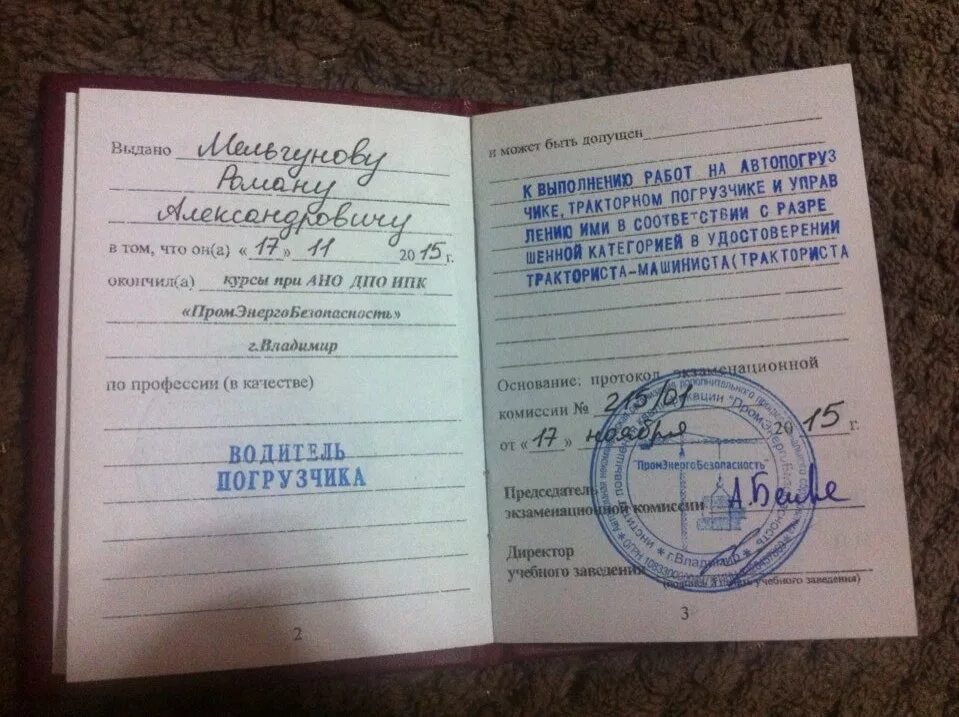 Выдано Мельгунову
Роману
Александровичу
в том, что он(а) «17» 11 2015 г.
окончил(а) курсы при АНО ДПО ИПК
«ПромЭнергоБезопасность»
г.Владимир
по профессии (в качестве)
ВОДИТЕЛЬ
ПОГРУЗЧИКА
2
и может быть допущен
К ВЫПОЛНЕНИЮ РАБОТ НА АВТОПОГРУЗ
ЧИКЕ, ТРАКТОРНОМ ПОГРУЗЧИКЕ И УПРАВ
ЛЕНИЮ ИМИ В СООТВЕТСТВИИ С РАЗРЕ
ШЕННОЙ КАТЕГОРИЕЙ В УДОСТОВЕРЕНИИ
ТРАКТОРИСТА-МАШИНИСТА(ТРАКТОРИСТА
Основание: протокол экзаменационной
комиссии № 215/01
от «17» ноября 2015 г.
"ПромЭнергоБезопасность"
Председатель
экзаменационной комиссии
Директор
учебного заведения
г.Владимир
учебного заведения)
3